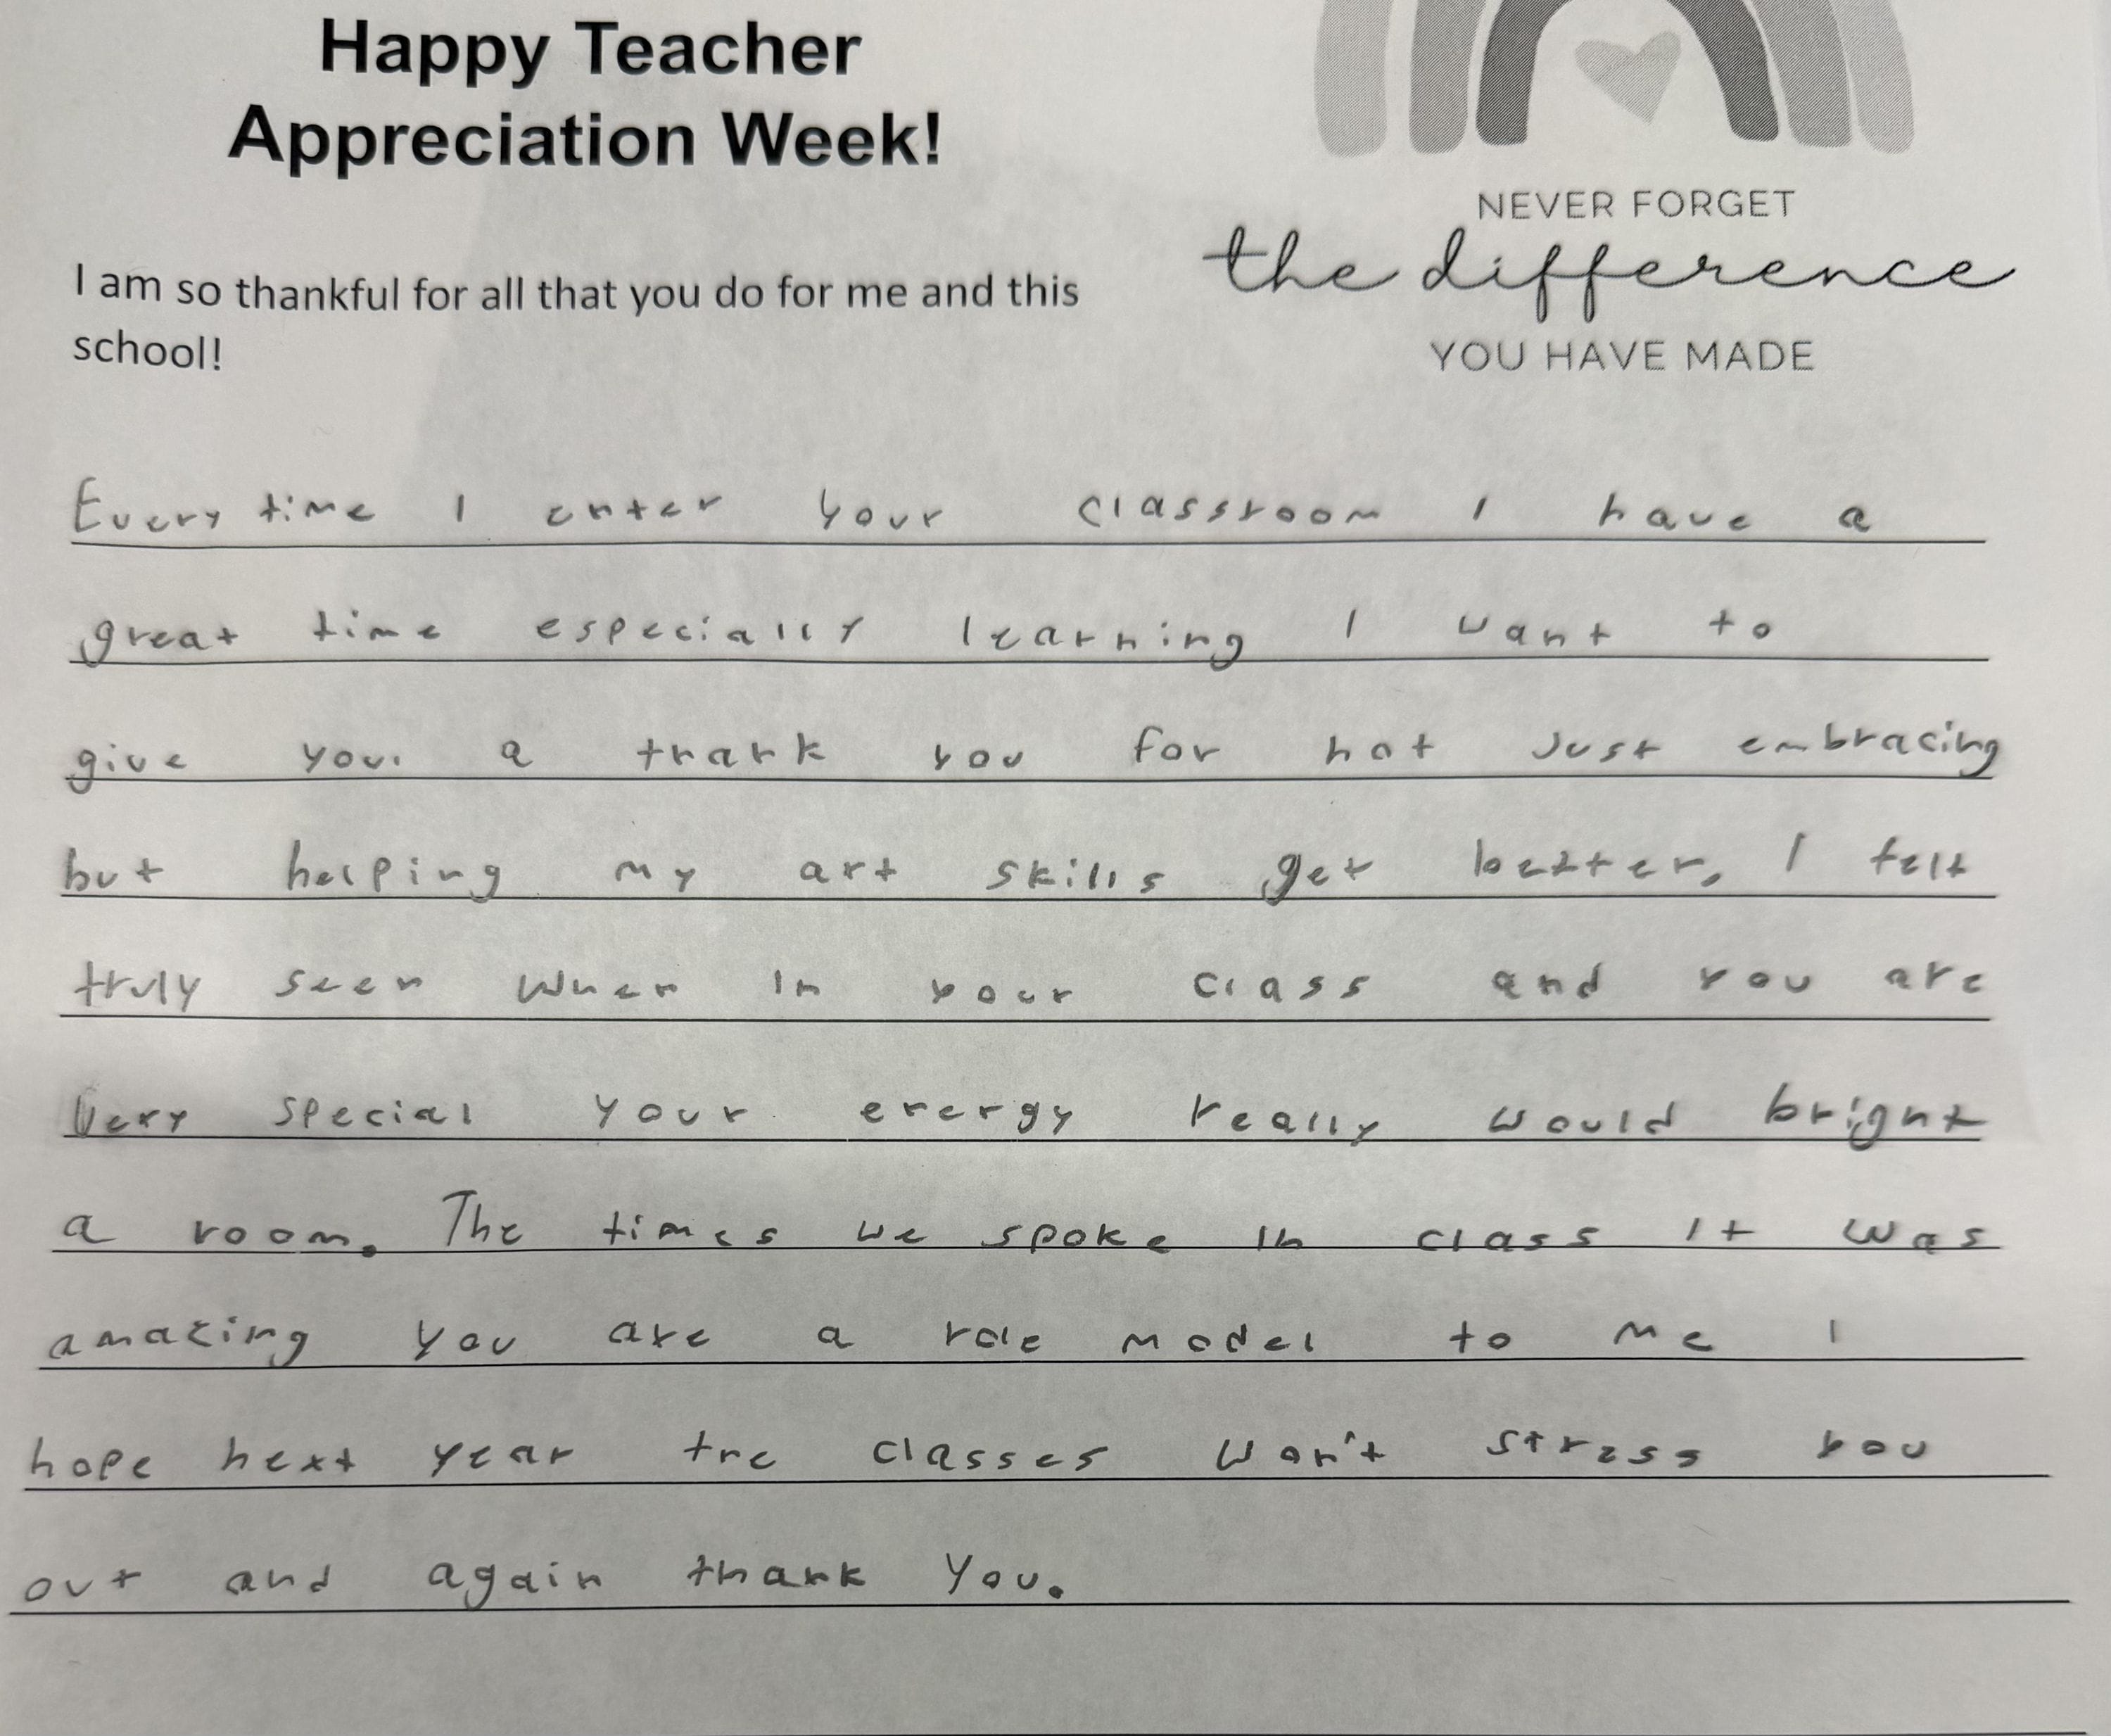 Happy Teacher
Appreciation Week!
I am so thankful for all that you do for me and this
school!
NEVER FORGET
the difference
YOU HAVE MADE
Every time I enter your classroom I have a
great time especially learning I want to
give you a thank you for not just embracing
but helping my art skills get better, I felt
truly seen when in your class and you are
Very special your energy really would bright
a room. The times we spoke in class it was
amazing you are a role model to me I
hope next year the classes won't stress you
out and again thank you.